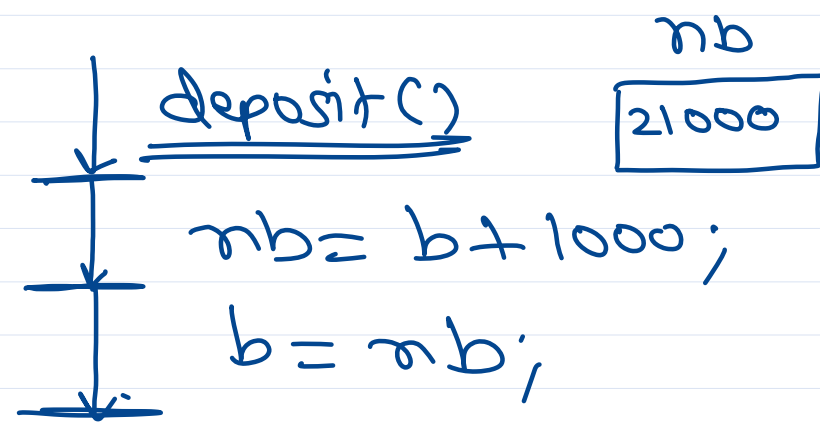 nb
deposit()
21000
nb = b + 1000;
b = nb;